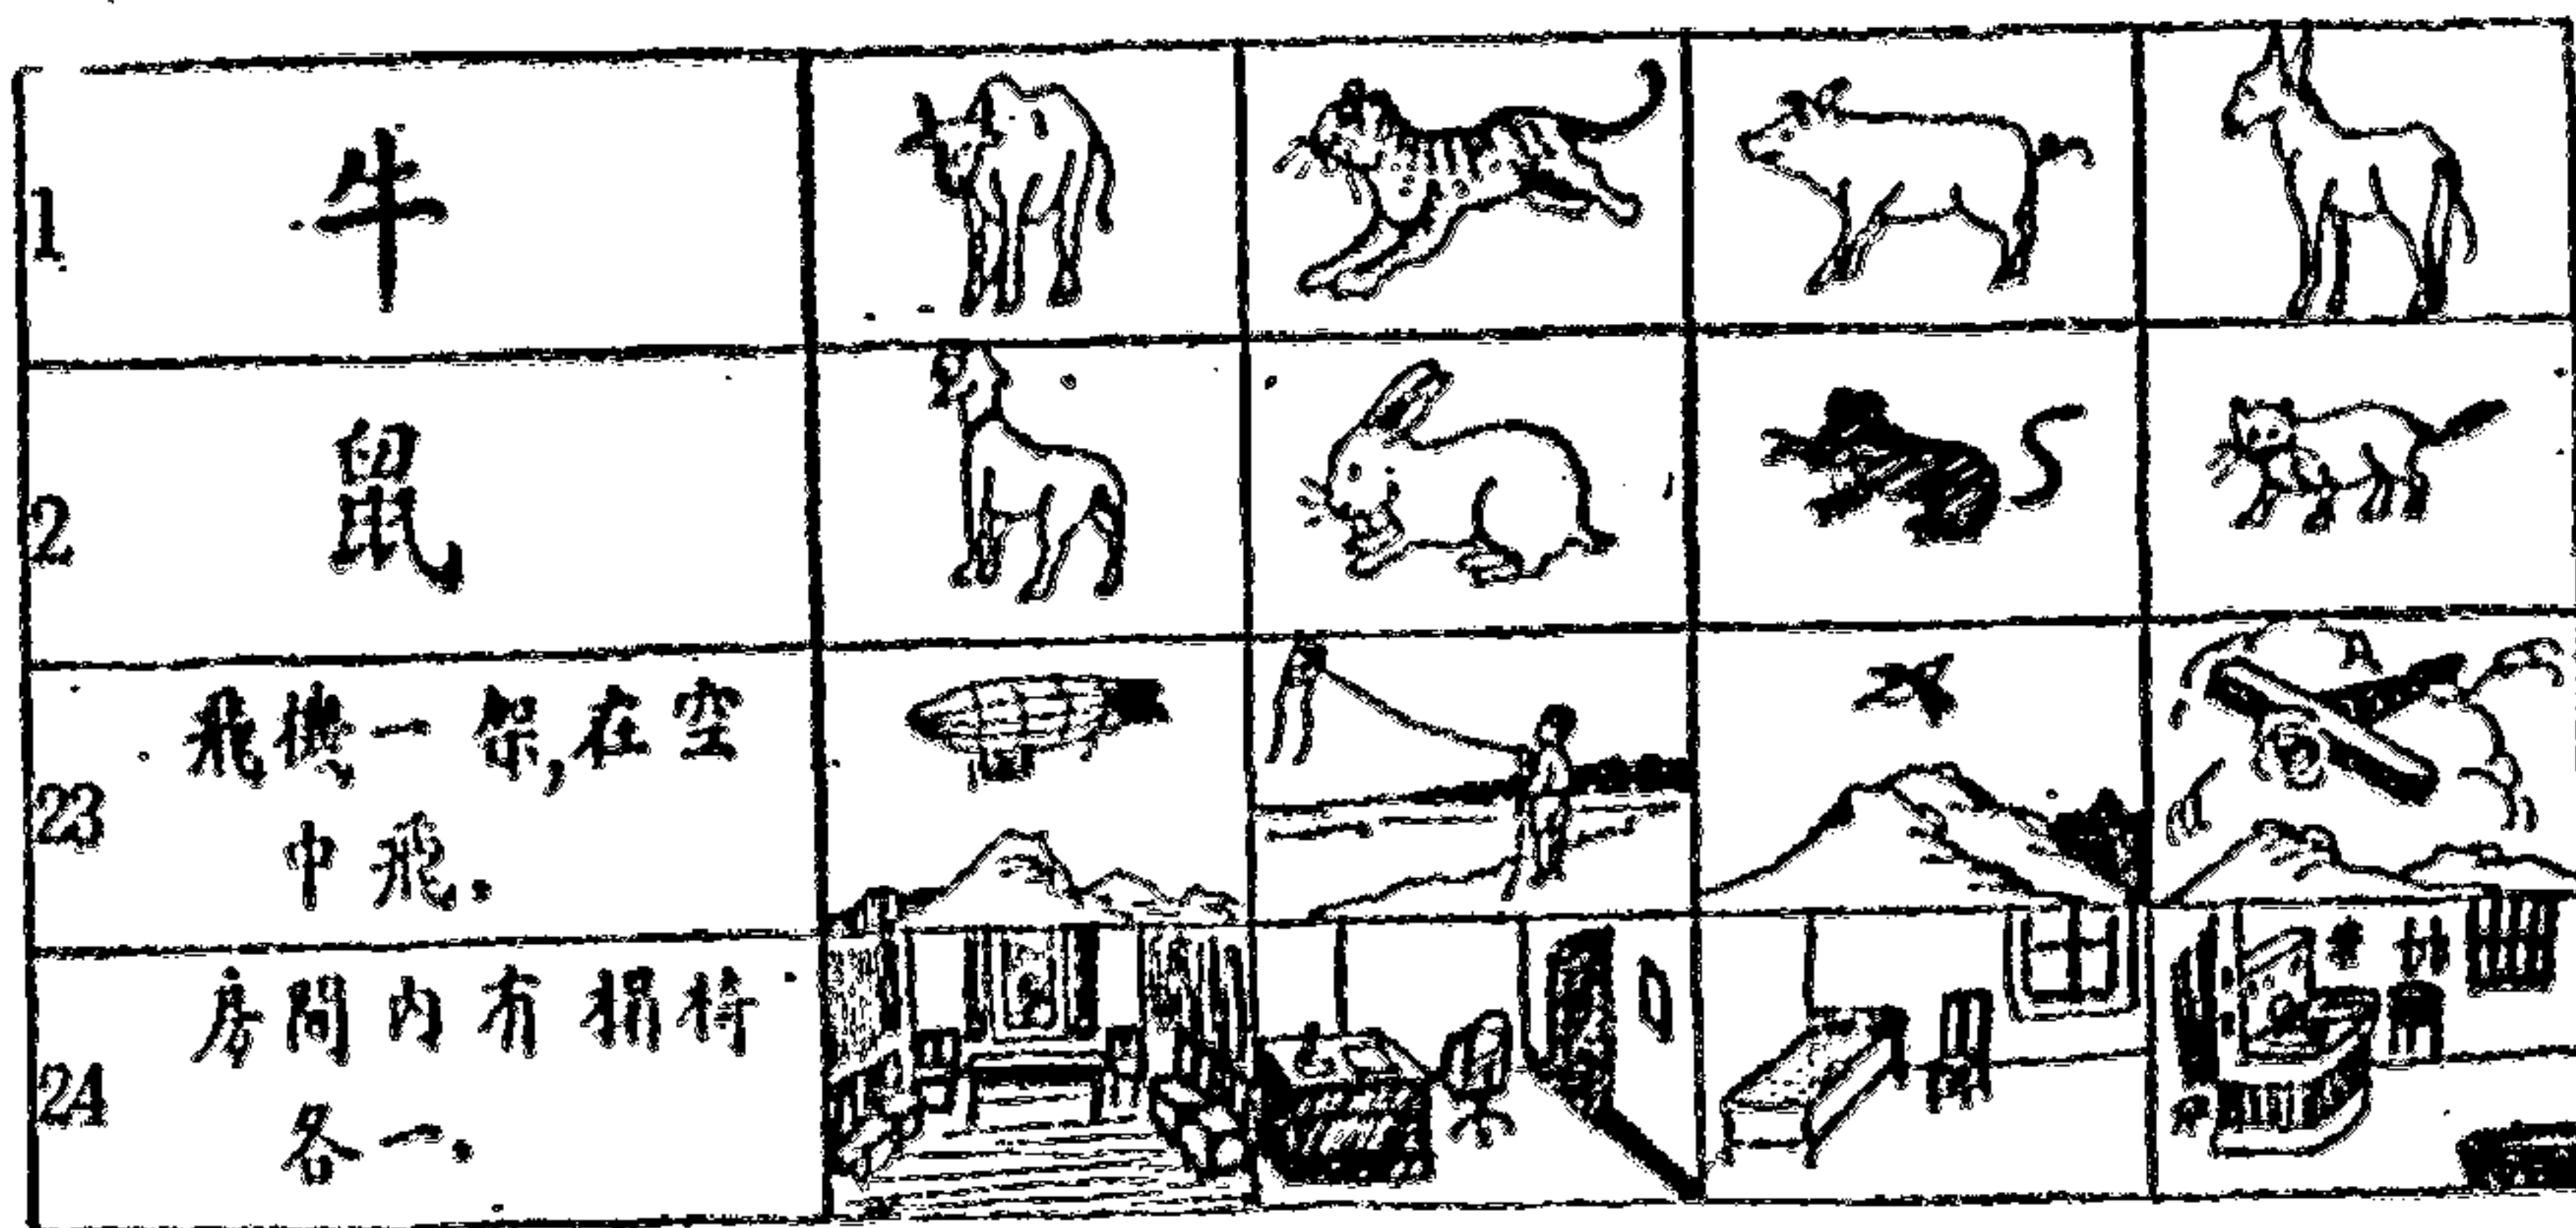 1 牛
2 鼠
23 飛機一架,在空
中飛.
24 房間內有椅
各一.